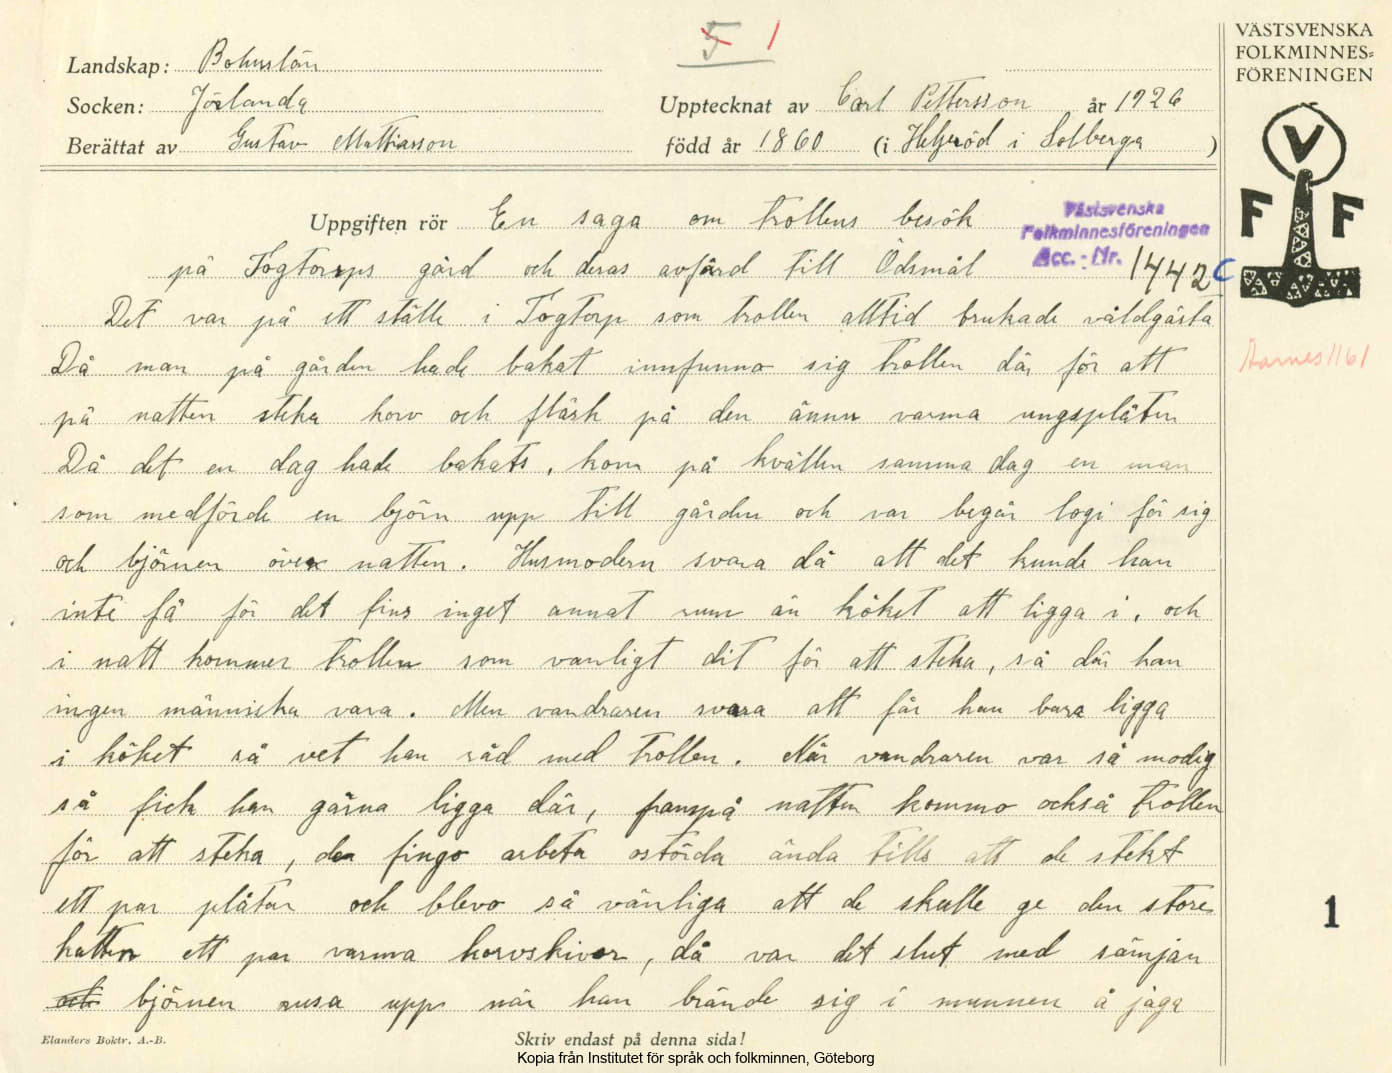 5 1
VÄSTSVENSKA
FOLKMINNES=
FÖRENINGEN
Landskap: Bohuslän
Socken: Jörlanda
Upptecknat av Carl Pettersson år 1926
Berättat av Gustav Mattiasson
född år 1860 (i Heljeröd i Solberga )
V
F F
Uppgiften rör En saga om trollens besök
Västsvenska
Folkminnesföreningen
Acc. - Nr. 1442 C
på Togtorps gård och deras avfärd till Ödsmål
Det var på ett ställe i Togtorp som trollen alltid brukade våldgästa
Aarnes 1161
Då man på gården hade bakat innfunno sig trollen där för att
på natten steka korv och fläsk på den ännu varma ungsplåten
Då det en dag hade bakats, kom på kvällen samma dag en man
som medförde en björn upp till gården och var begär logi för sig
och björnen över natten. Husmodern svara då att det kunde han
inte få för det fins inget annat rum än köket att ligga i, och
i natt kommer trollen som vanligt dit för att steka, så där kan
ingen människa vara. Men vandraren svara att får han bara ligga
i köket så vet han råd med trollen. När vandraren var så modig
så fick han gärna ligga där, frampå natten kommo också trollen
för att steka, de fingo arbeta ostörda ända tills att de stekt
ett par plåtar och blevo så vänliga att de skulle ge den store
katten ett par varma korvskivor, då var det slut med sämjan
och björnen rusa upp när han brände sig i munnen å jaga
1
Elanders Boktr. A.-B.
Skriv endast på denna sida!
Kopia från Institutet för språk och folkminnen, Göteborg